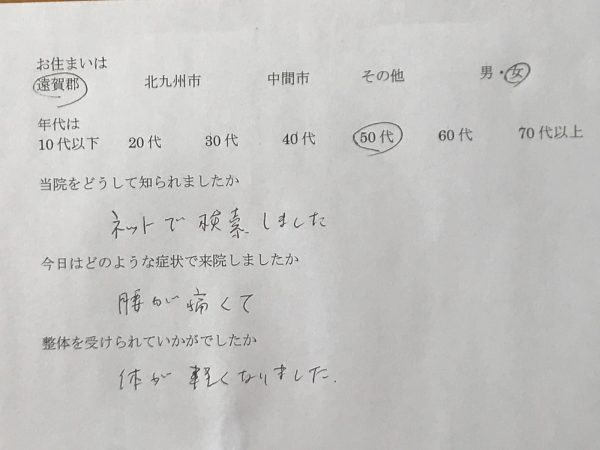 お住まいは
遠賀郡 北九州市 中間市 その他 男・女
年代は
10代以下 20代 30代 40代 50代 60代 70代以上
当院をどうして知られましたか
ネットで検索しました
今日はどのような症状で来院しましたか
腰が痛くて
整体を受けられていかがでしたか
体が軽くなりました.